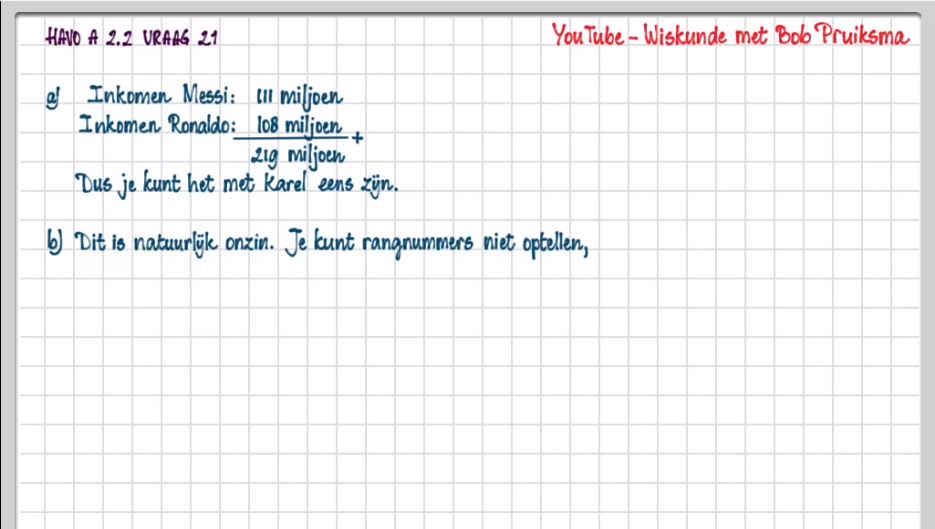 HAVO A 2.2 VRAAG 21
YouTube - Wiskunde met Bob Pruiksma
a) Inkomen Messi: 111 miljoen
Inkomen Ronaldo: 108 miljoen +
219 miljoen
Dus je kunt het met Karel eens zijn.
b) Dit is natuurlijk onzin. Je kunt rangnummers niet optellen,